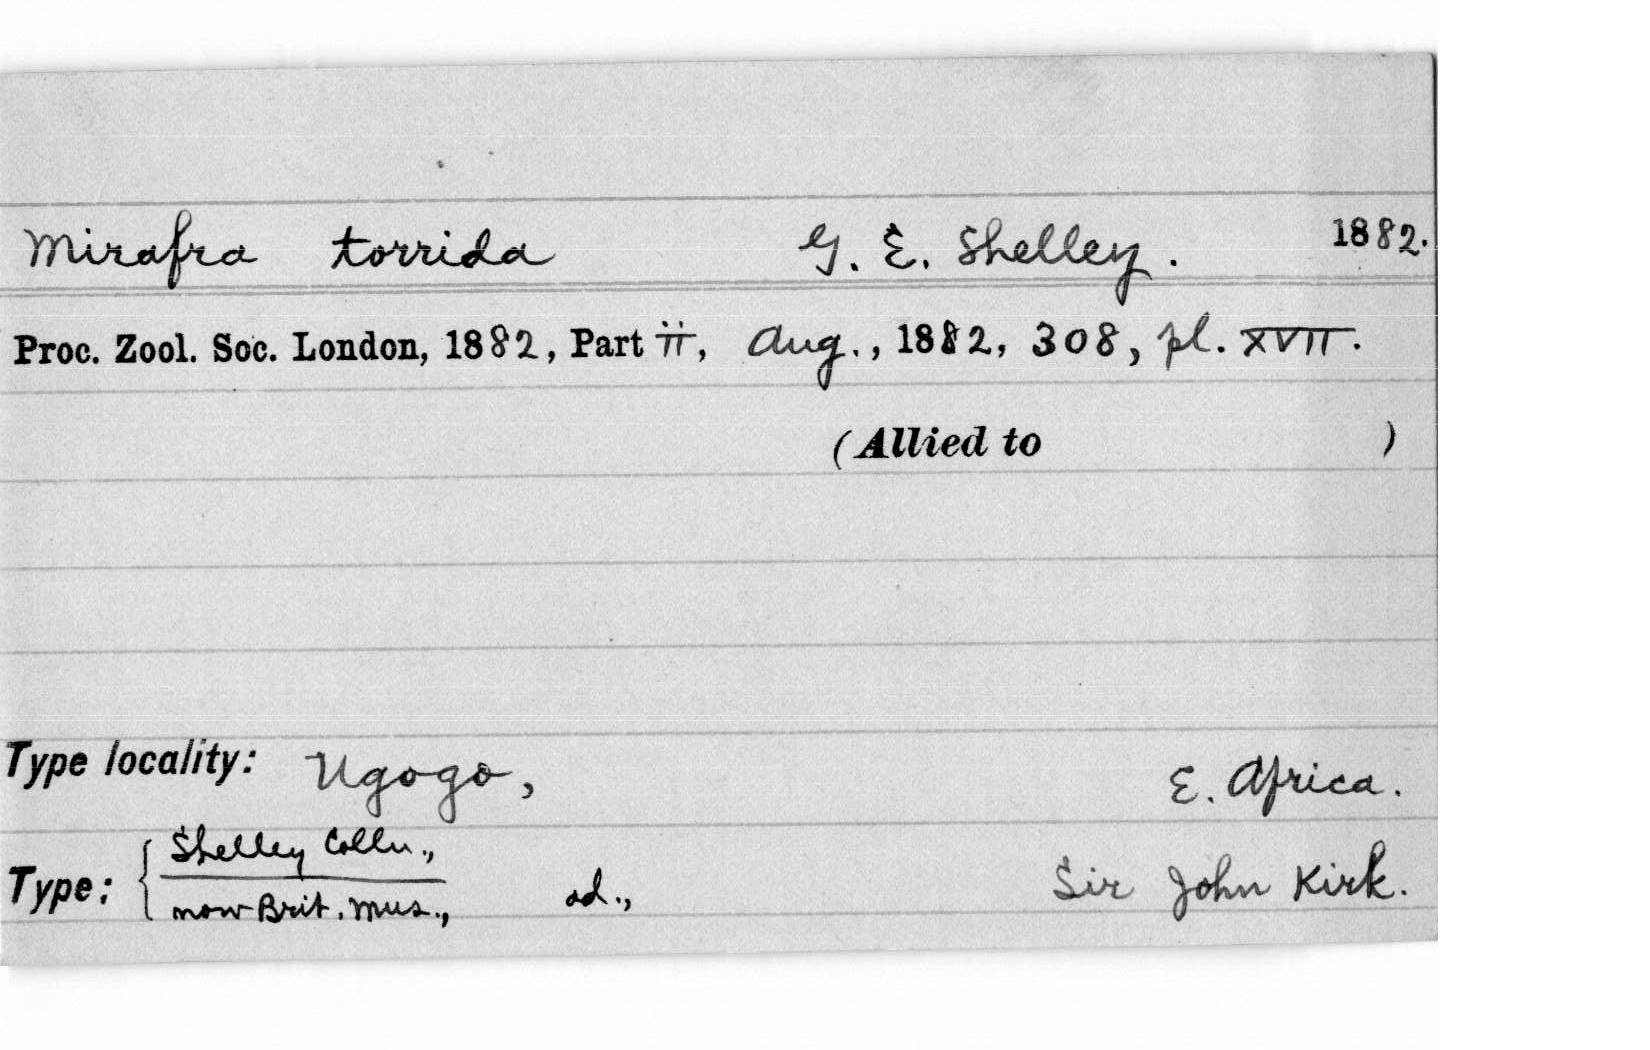 Mirafra torrida G. E. Shelley. 1882.
Proc. Zool. Soc. London, 1882, Part ii, Aug., 1882, 308, pl. XVII.
(Allied to )
Type locality: Ugogo, E. Africa.
Shelley Colln.,
Type: ad., Sir John Kirk.
now Brit. Mus.,